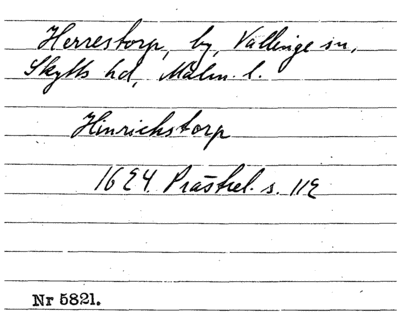 Herrestorp, by, Vellinge sn,
Skytts hd, Malm. l.
Hinrichstorp
1624 Prästrel. s. 112
Nr 5821.